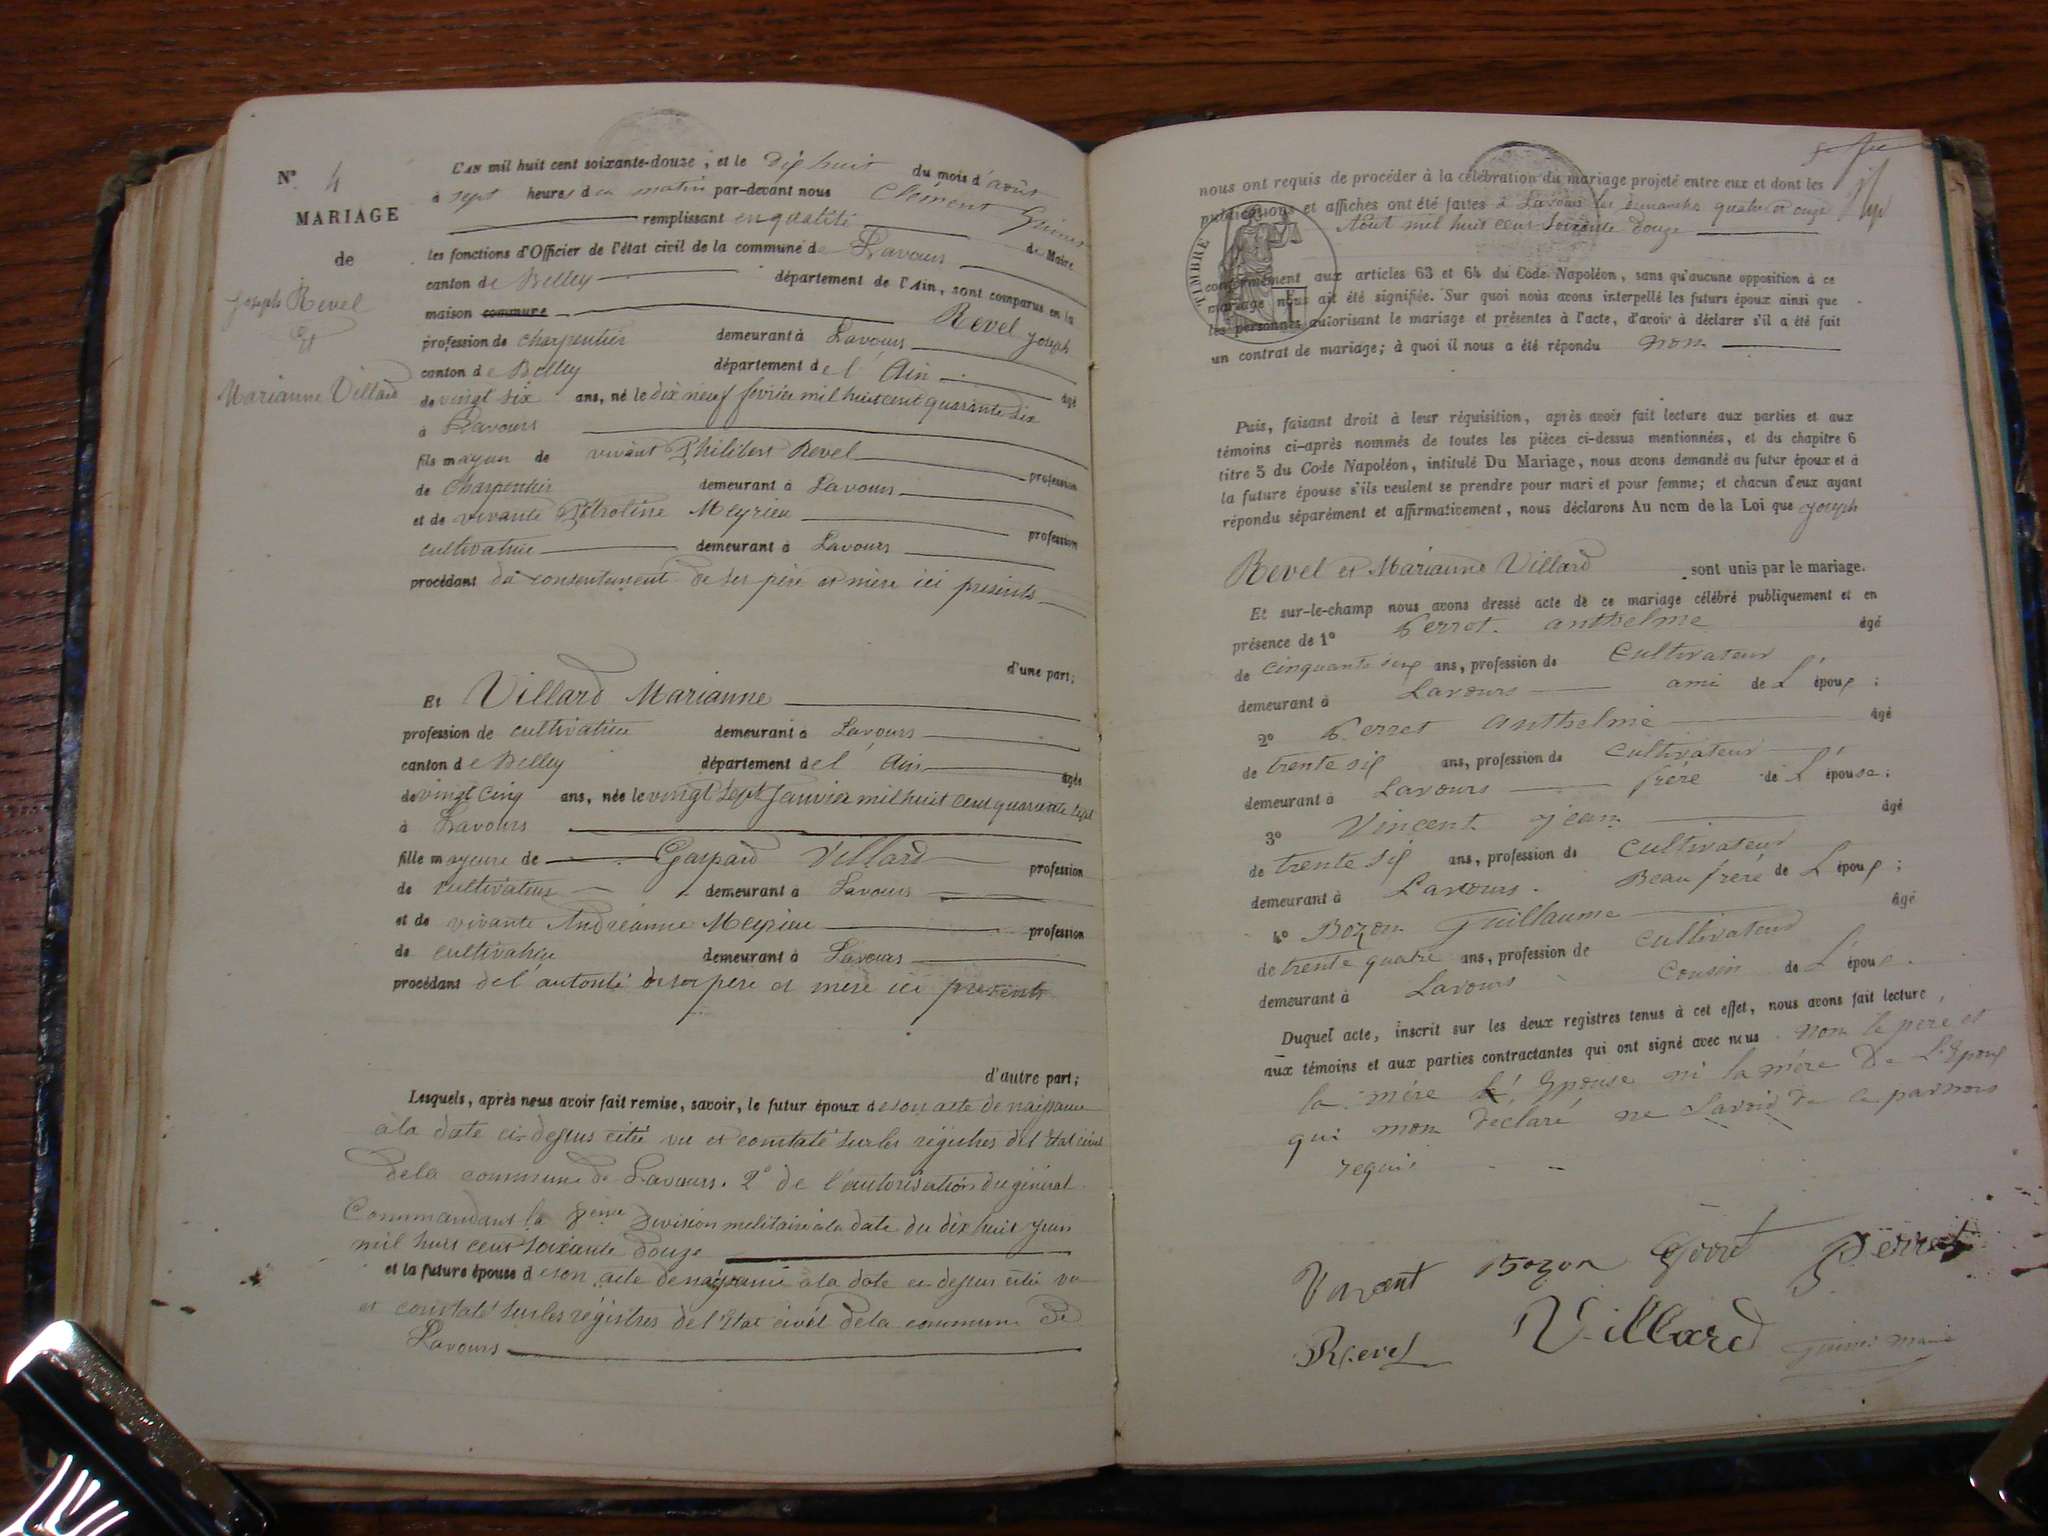 N° 4
MARIAGE
de
Joseph Revel
Et
Marianne Villard
L'AN mil huit cent soixante-douze, et le dix huit du mois d'août
à sept heures du matin par-devant nous Clément
remplissant en qualité de Maire
les fonctions d'Officier de l'état civil de la commune de Lavours
canton de Belley département de l'Ain, sont comparus en la
maison commune Revel Joseph
profession de charpentier demeurant à Lavours
canton de Belley département de l'Ain âgé
de vingt six ans, né le dix neuf février mil huit cent quarante six
à Lavours
fils majeur de vivant Philibert Revel profession
de charpentier demeurant à Lavours
et de vivante Pétroline Meyrieu profession
cultivatrice demeurant à Lavours
procédant du consentement de ses père et mère ici présents
d'une part;
Et Villard Marianne
profession de cultivatrice demeurant à Lavours
canton de Belley département de l'Ain âgée
de vingt cinq ans, née le vingt sept janvier mil huit cent quarante sept
à Lavours
fille majeure de Gaspard Villard profession
de cultivateur demeurant à Lavours
et de vivante Andréanne Meyrieu profession
de cultivatrice demeurant à Lavours
procédant de l'autorité de ses père et mère ici présents
d'autre part;
Lesquels, après nous avoir fait remise, savoir, le futur époux de son acte de naissance
à la date ci-dessus citée vu et constaté sur les régistres de l'Etat civil
de la commune de Lavours. 2° de l'autorisation du général
Commandant la 8ème Division militaire à la date du dix huit juin
mil huit cent soixante douze
et la future épouse de son acte de naissance à la date ci-dessus citée vu
et constaté sur les régistres de l'Etat civil de la commune de
Lavours
nous ont requis de procéder à la célébration du mariage projeté entre eux et dont les
publications et affiches ont été faites à Lavours les dimanches quatre et onze
Aout mil huit cent soixante douze
TIMBRE
conformément aux articles 63 et 64 du Code Napoléon, sans qu'aucune opposition à ce
mariage nous ait été signifiée. Sur quoi nous avons interpellé les futurs époux ainsi que
les personnes autorisant le mariage et présentes à l'acte, d'avoir à déclarer s'il a été fait
un contrat de mariage; à quoi il nous a été répondu non
Puis, faisant droit à leur réquisition, après avoir fait lecture aux parties et aux
témoins ci-après nommés de toutes les pièces ci-dessus mentionnées, et du chapitre 6
titre 5 du Code Napoléon, intitulé Du Mariage, nous avons demandé au futur époux et à
la future épouse s'ils veulent se prendre pour mari et pour femme; et chacun d'eux ayant
répondu séparément et affirmativement, nous déclarons Au nom de la Loi que Joseph
Revel et Marianne Villard sont unis par le mariage.
Et sur-le-champ nous avons dressé acte de ce mariage célébré publiquement et en
présence de 1° Perrot anthelme âgé
de cinquante six ans, profession de Cultivateur
demeurant à Lavours ami de L'époux;
2° Perret anthelme âgé
de trente six ans, profession de cultivateur
demeurant à Lavours frère de L'épouse;
3° Vincent jean âgé
de trente six ans, profession de cultivateur
demeurant à Lavours. Beau frère de L'époux;
4° Bozon Guillaume âgé
de trente quatre ans, profession de cultivateur
demeurant à Lavours cousin de L'époux.
Duquel acte, inscrit sur les deux registres tenus à cet effet, nous avons fait lecture
aux témoins et aux parties contractantes qui ont signé avec nous non le père et
la mère l'Epouse ni la mère De L'Epoux
qui mon declaré ne Savoir de ce par nous
requis
Bozon Perret
Revel Villard